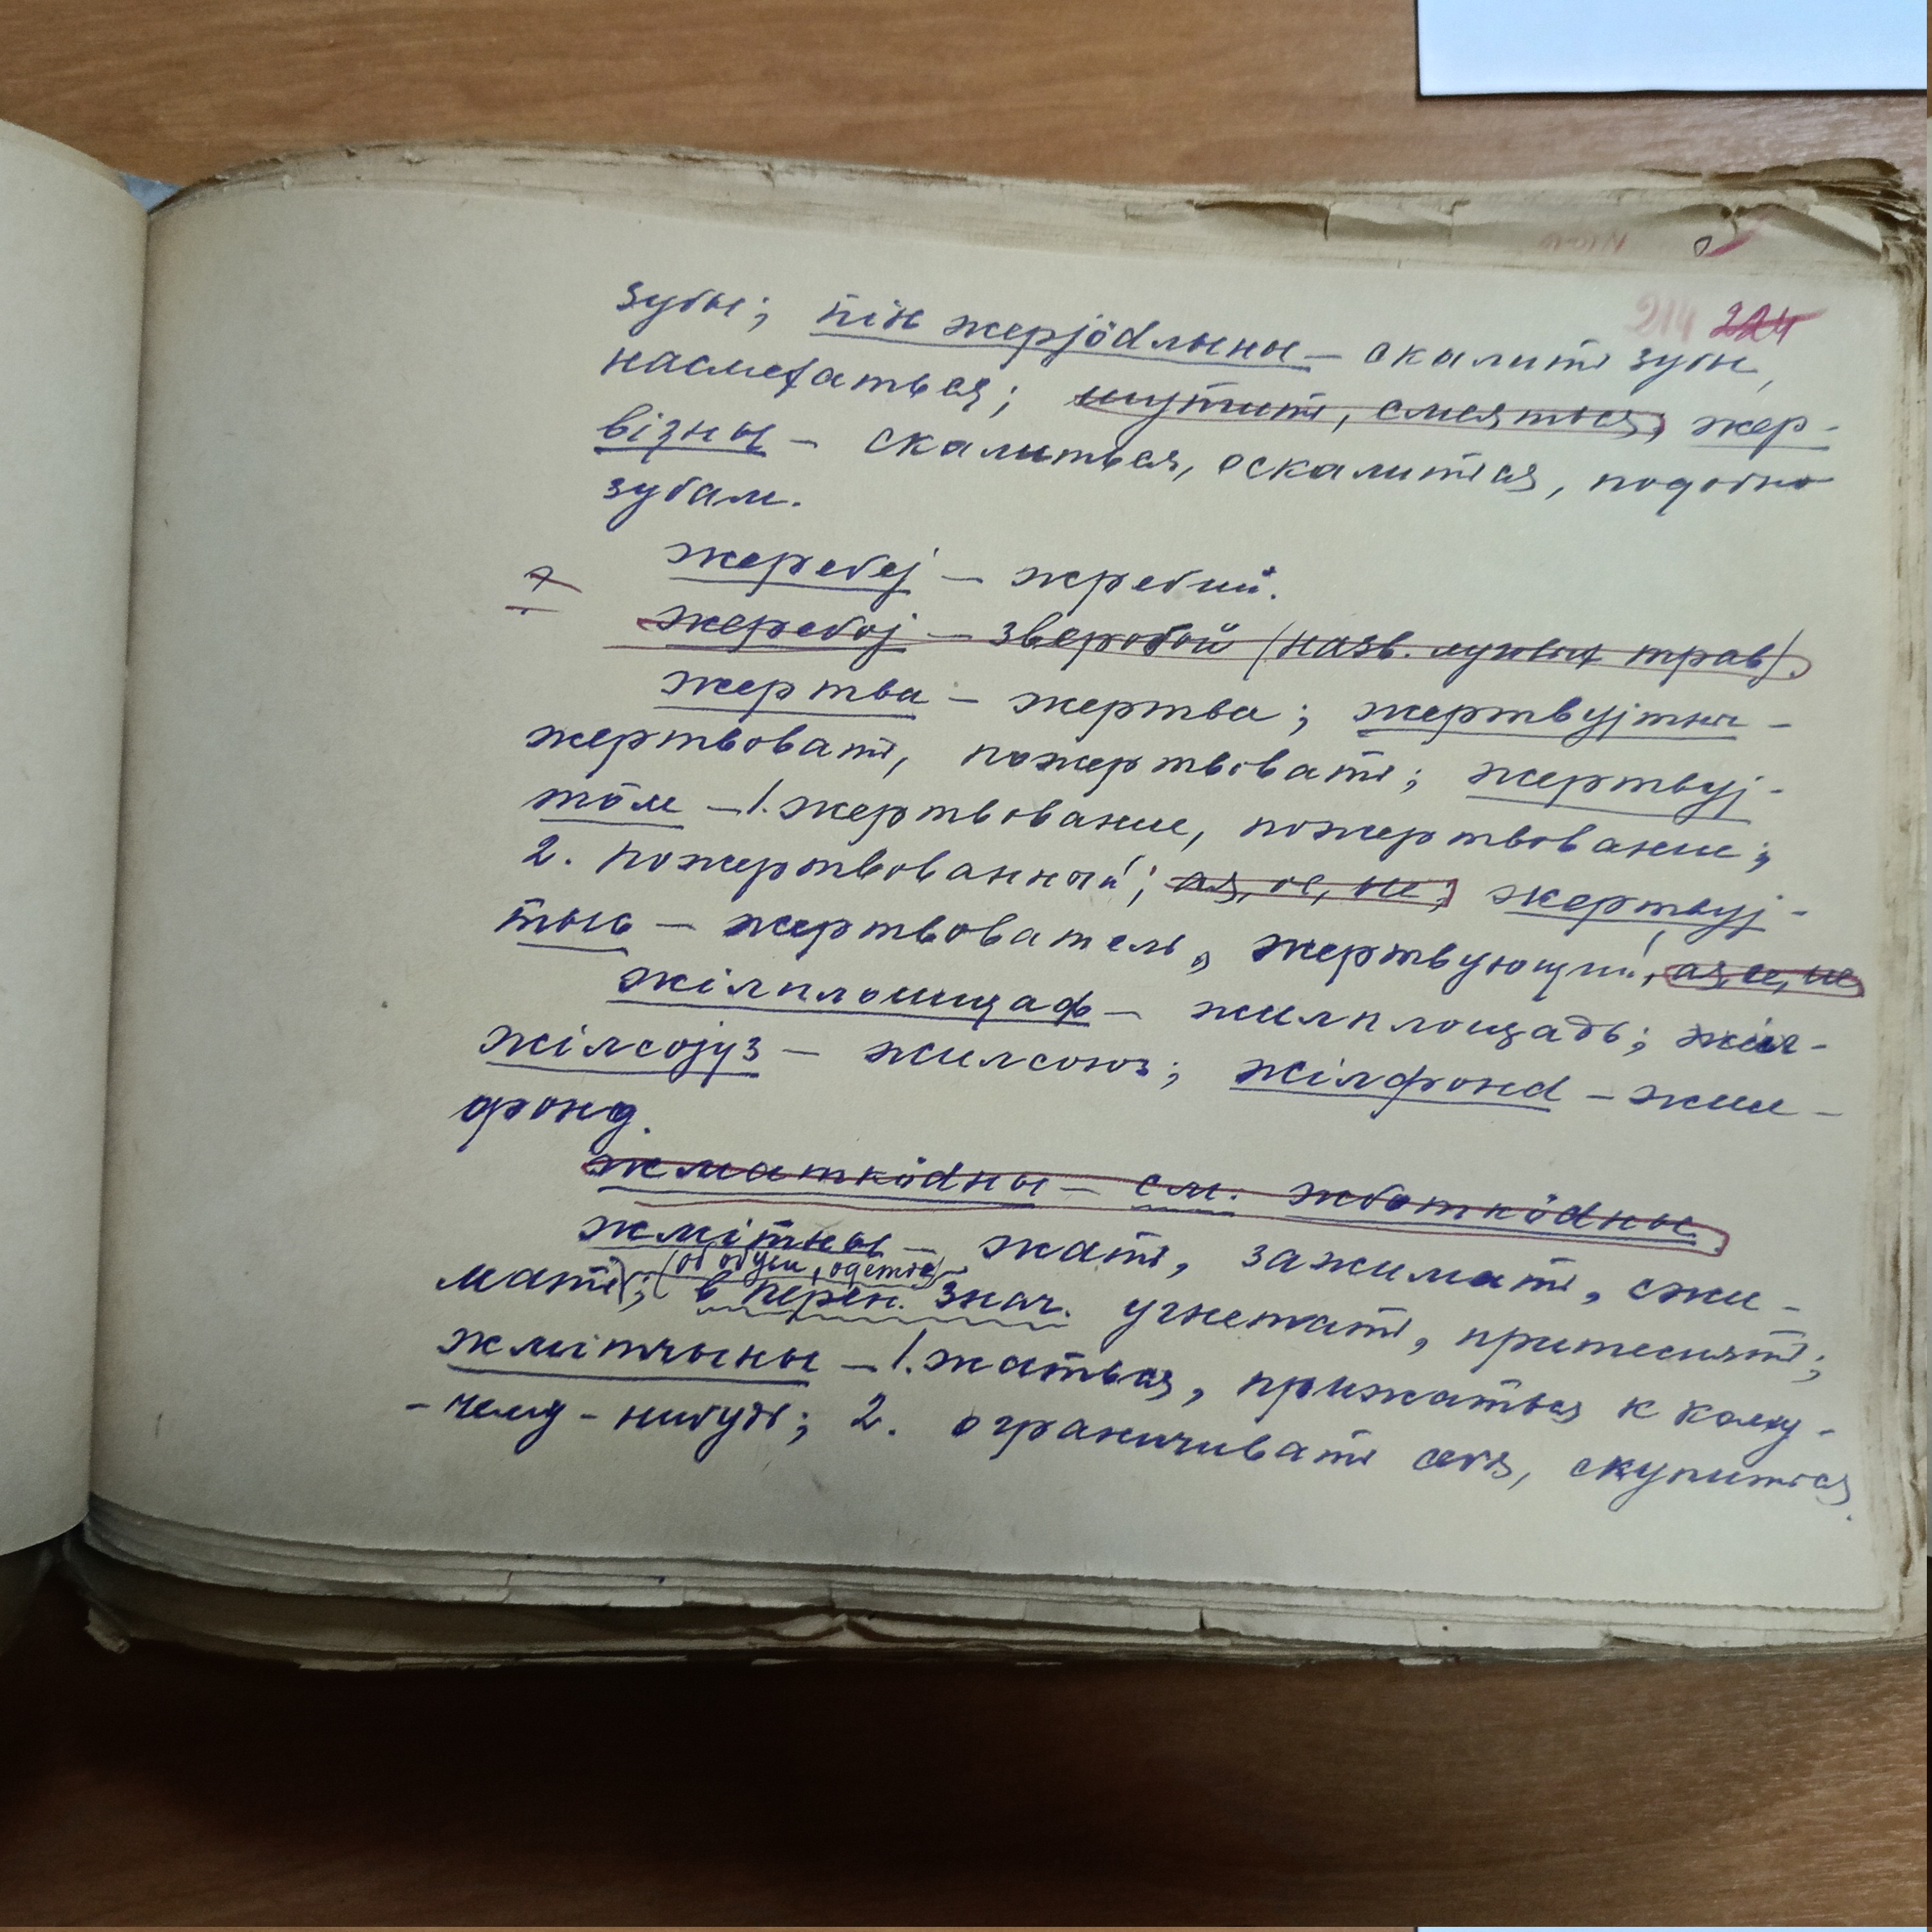 214 224
зубы; пiнь жерjödлыны – скалить зубы,
насмехаться; шутить, смеяться; жер-
вiзны – скалиться, оскалиться, подобно
зубам.
жеребеj – жребий.
жеребоj – зверобой (назв. луговых трав).
жертва – жертва; жертвуjтны –
жертвовать, пожертвовать; жертвуj-
тöм – 1. жертвование, пожертвование;
2. пожертвованный; ая, ое, ые; жертвуj-
тыс – жертвователь, жертвующий, ая, ее, ие
жiлплощаф – жилплощадь;
жiлсоjуз – жилсоюз; жiлфонd – жил-
фонд.
жматкödны – см. жботкödны.
жмiтны – жать, зажимать, сжи-
(об обуви, одежде)
мать; в перен. знач. угнетать, притеснять;
жмiтчыны – 1. жаться, прижаться к кому-
-чему-нибудь; 2. ограничивать себя, скупиться.